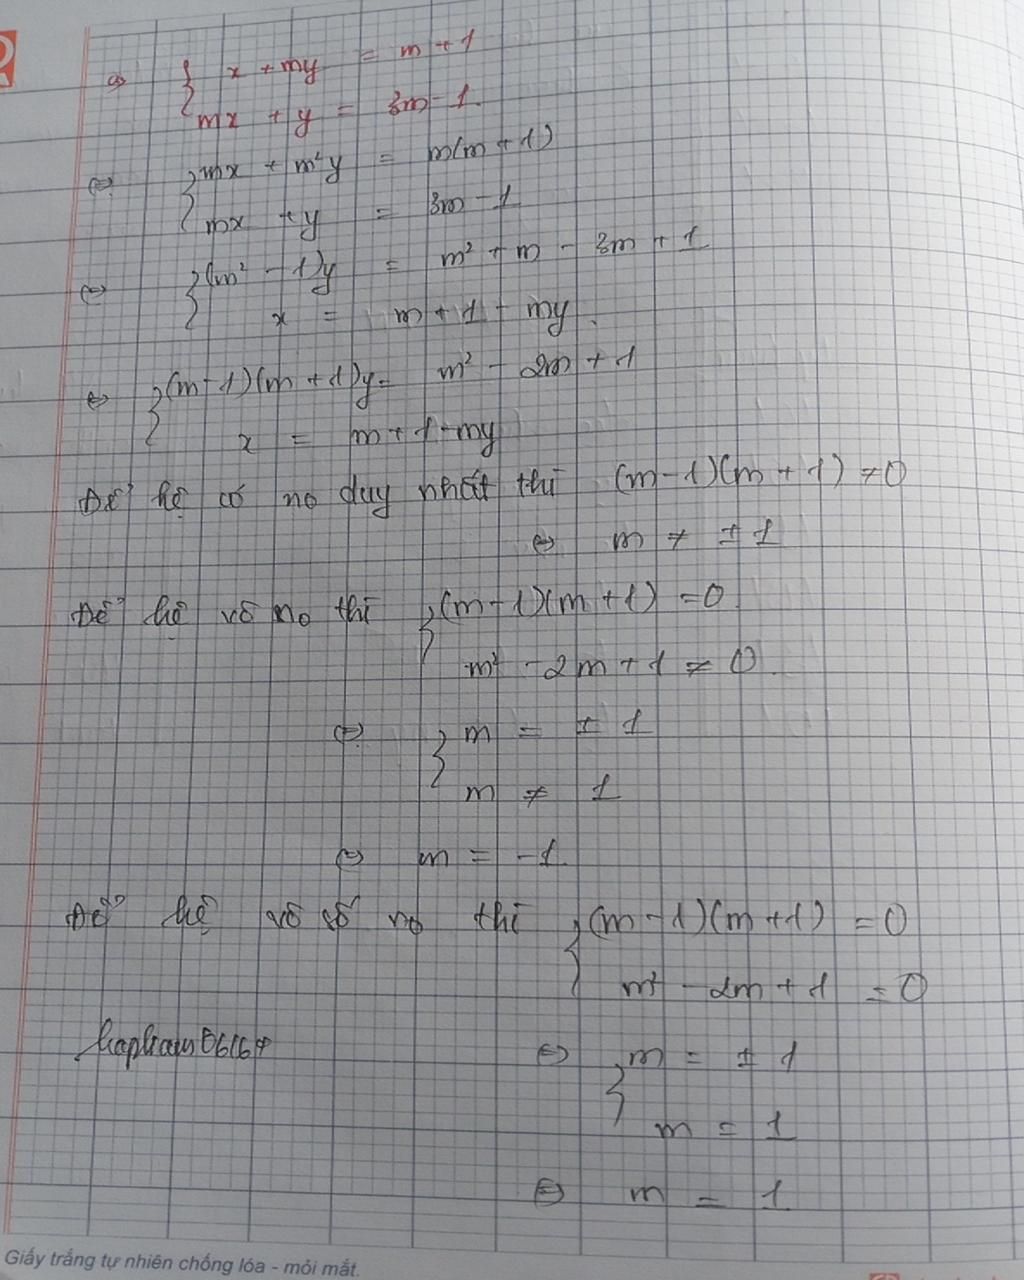 a) { x + my = m + 1
mx + y = 3m - 1
⇔ { mx + m²y = m(m + 1)
mx + y = 3m - 1
⇔ { (m² - 1)y = m² + m - 3m + 1
x = m + 1 - my
⇔ { (m - 1)(m + 1)y = m² - 2m + 1
x = m + 1 - my
Để hệ có no duy nhất thì (m - 1)(m + 1) ≠ 0
⇔ m ≠ ± 1
Để hệ vô no thì { (m - 1)(m + 1) = 0
m² - 2m + 1 ≠ 0
⇔ { m = ± 1
m ≠ 1
⇔ m = -1
Để hệ vô số no thì { (m - 1)(m + 1) = 0
m² - 2m + 1 = 0
⇔ { m = ± 1
m = 1
⇔ m = 1
Giấy trắng tự nhiên chống lóa - mỏi mắt.